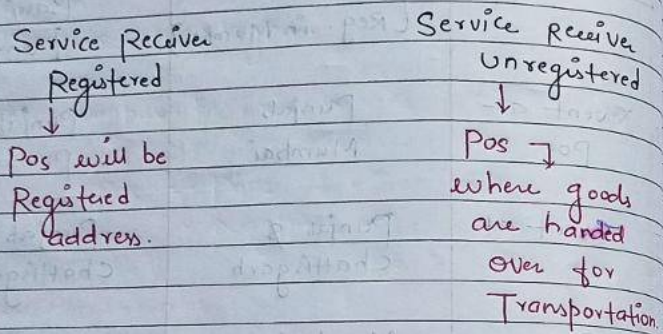 Service Receiver
Registered
↓
Pos will be
Registered
address.
Service Receiver
Unregistered
↓
Pos
where goods
are handed
over for
Transportation